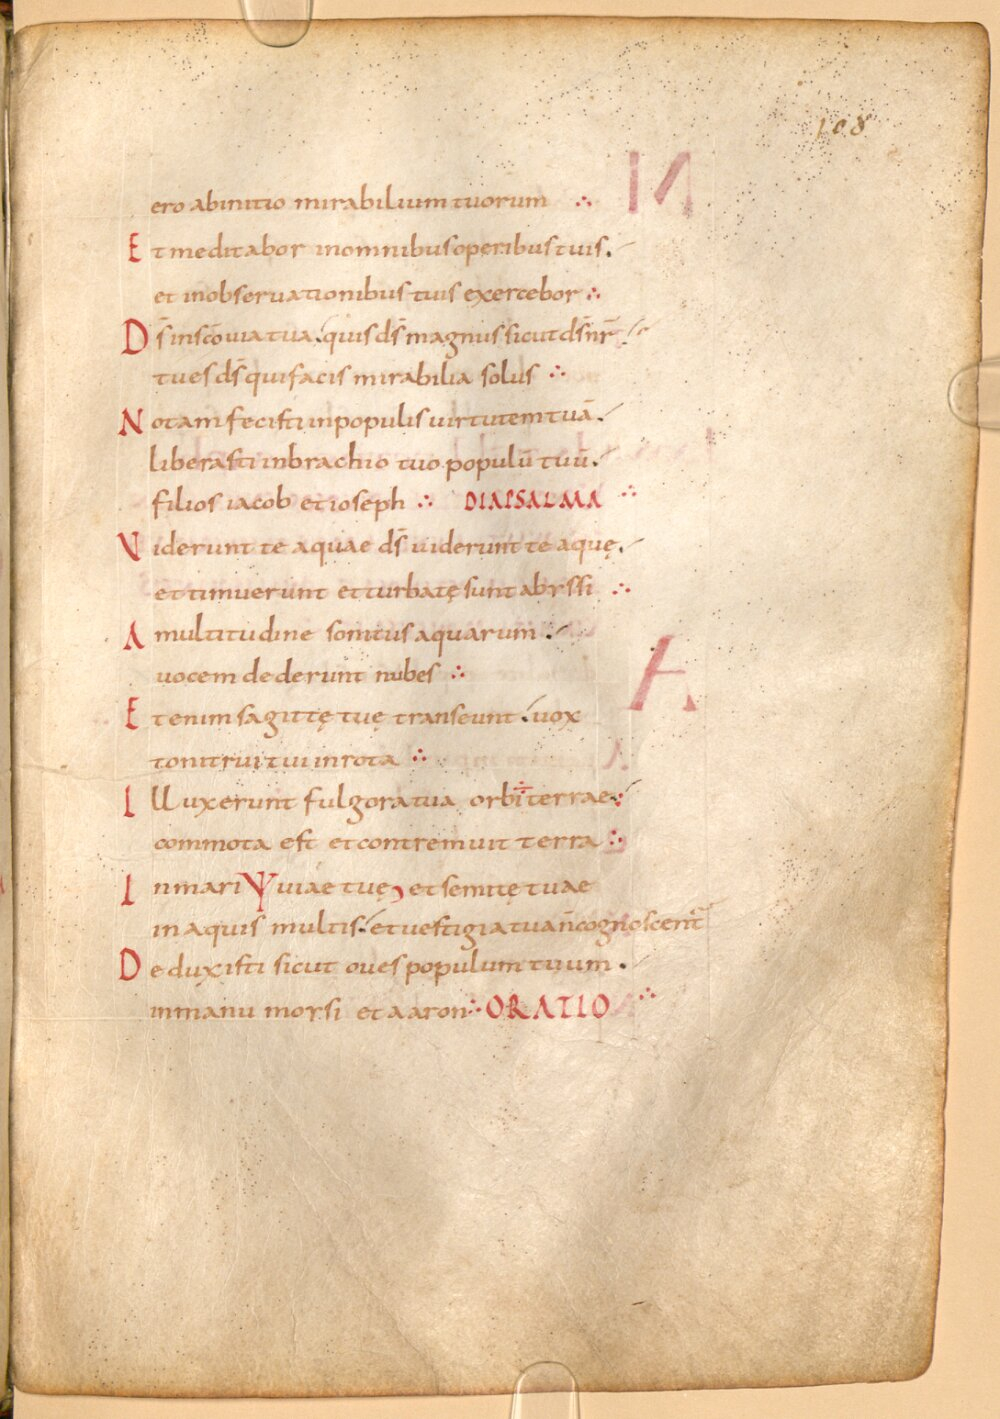 108
ero abinitio mirabilium tuorum ∴
Et meditabor inomnibus operibus tuis.
et inobservationibus tuis exercebor ∴
Ds̄ inscō via tua. quis ds̄ magnus sicut ds̄ nr̄.
tu es ds̄ qui facis mirabilia solus ∴
Notam fecisti inpopulis uirtutem tuā.
liberasti inbrachio tuo populū tuū.
filios iacob et ioseph ∴ DIAPSALMA ∴
Viderunt te aquae ds̄ uiderunt te aquę.
et timuerunt et turbatę sunt abyssi ∴
A multitudine sonitus aquarum.
uocem dederunt nubes ∴
Etenim sagittę tuę transeunt. uox
tonitrui tui inrota ∴
Illuxerunt fulgora tua orbi ÷ terrae:
commota est et contremuit terra ∴
Inmari Ψ uiae tuę, et semitę tuae
in aquis multis. et uestigia tua n̄ cognoscent᷑
Deduxisti sicut oues populum tuum.
inmanu moysi et aaron ∴ ORATIO ∴